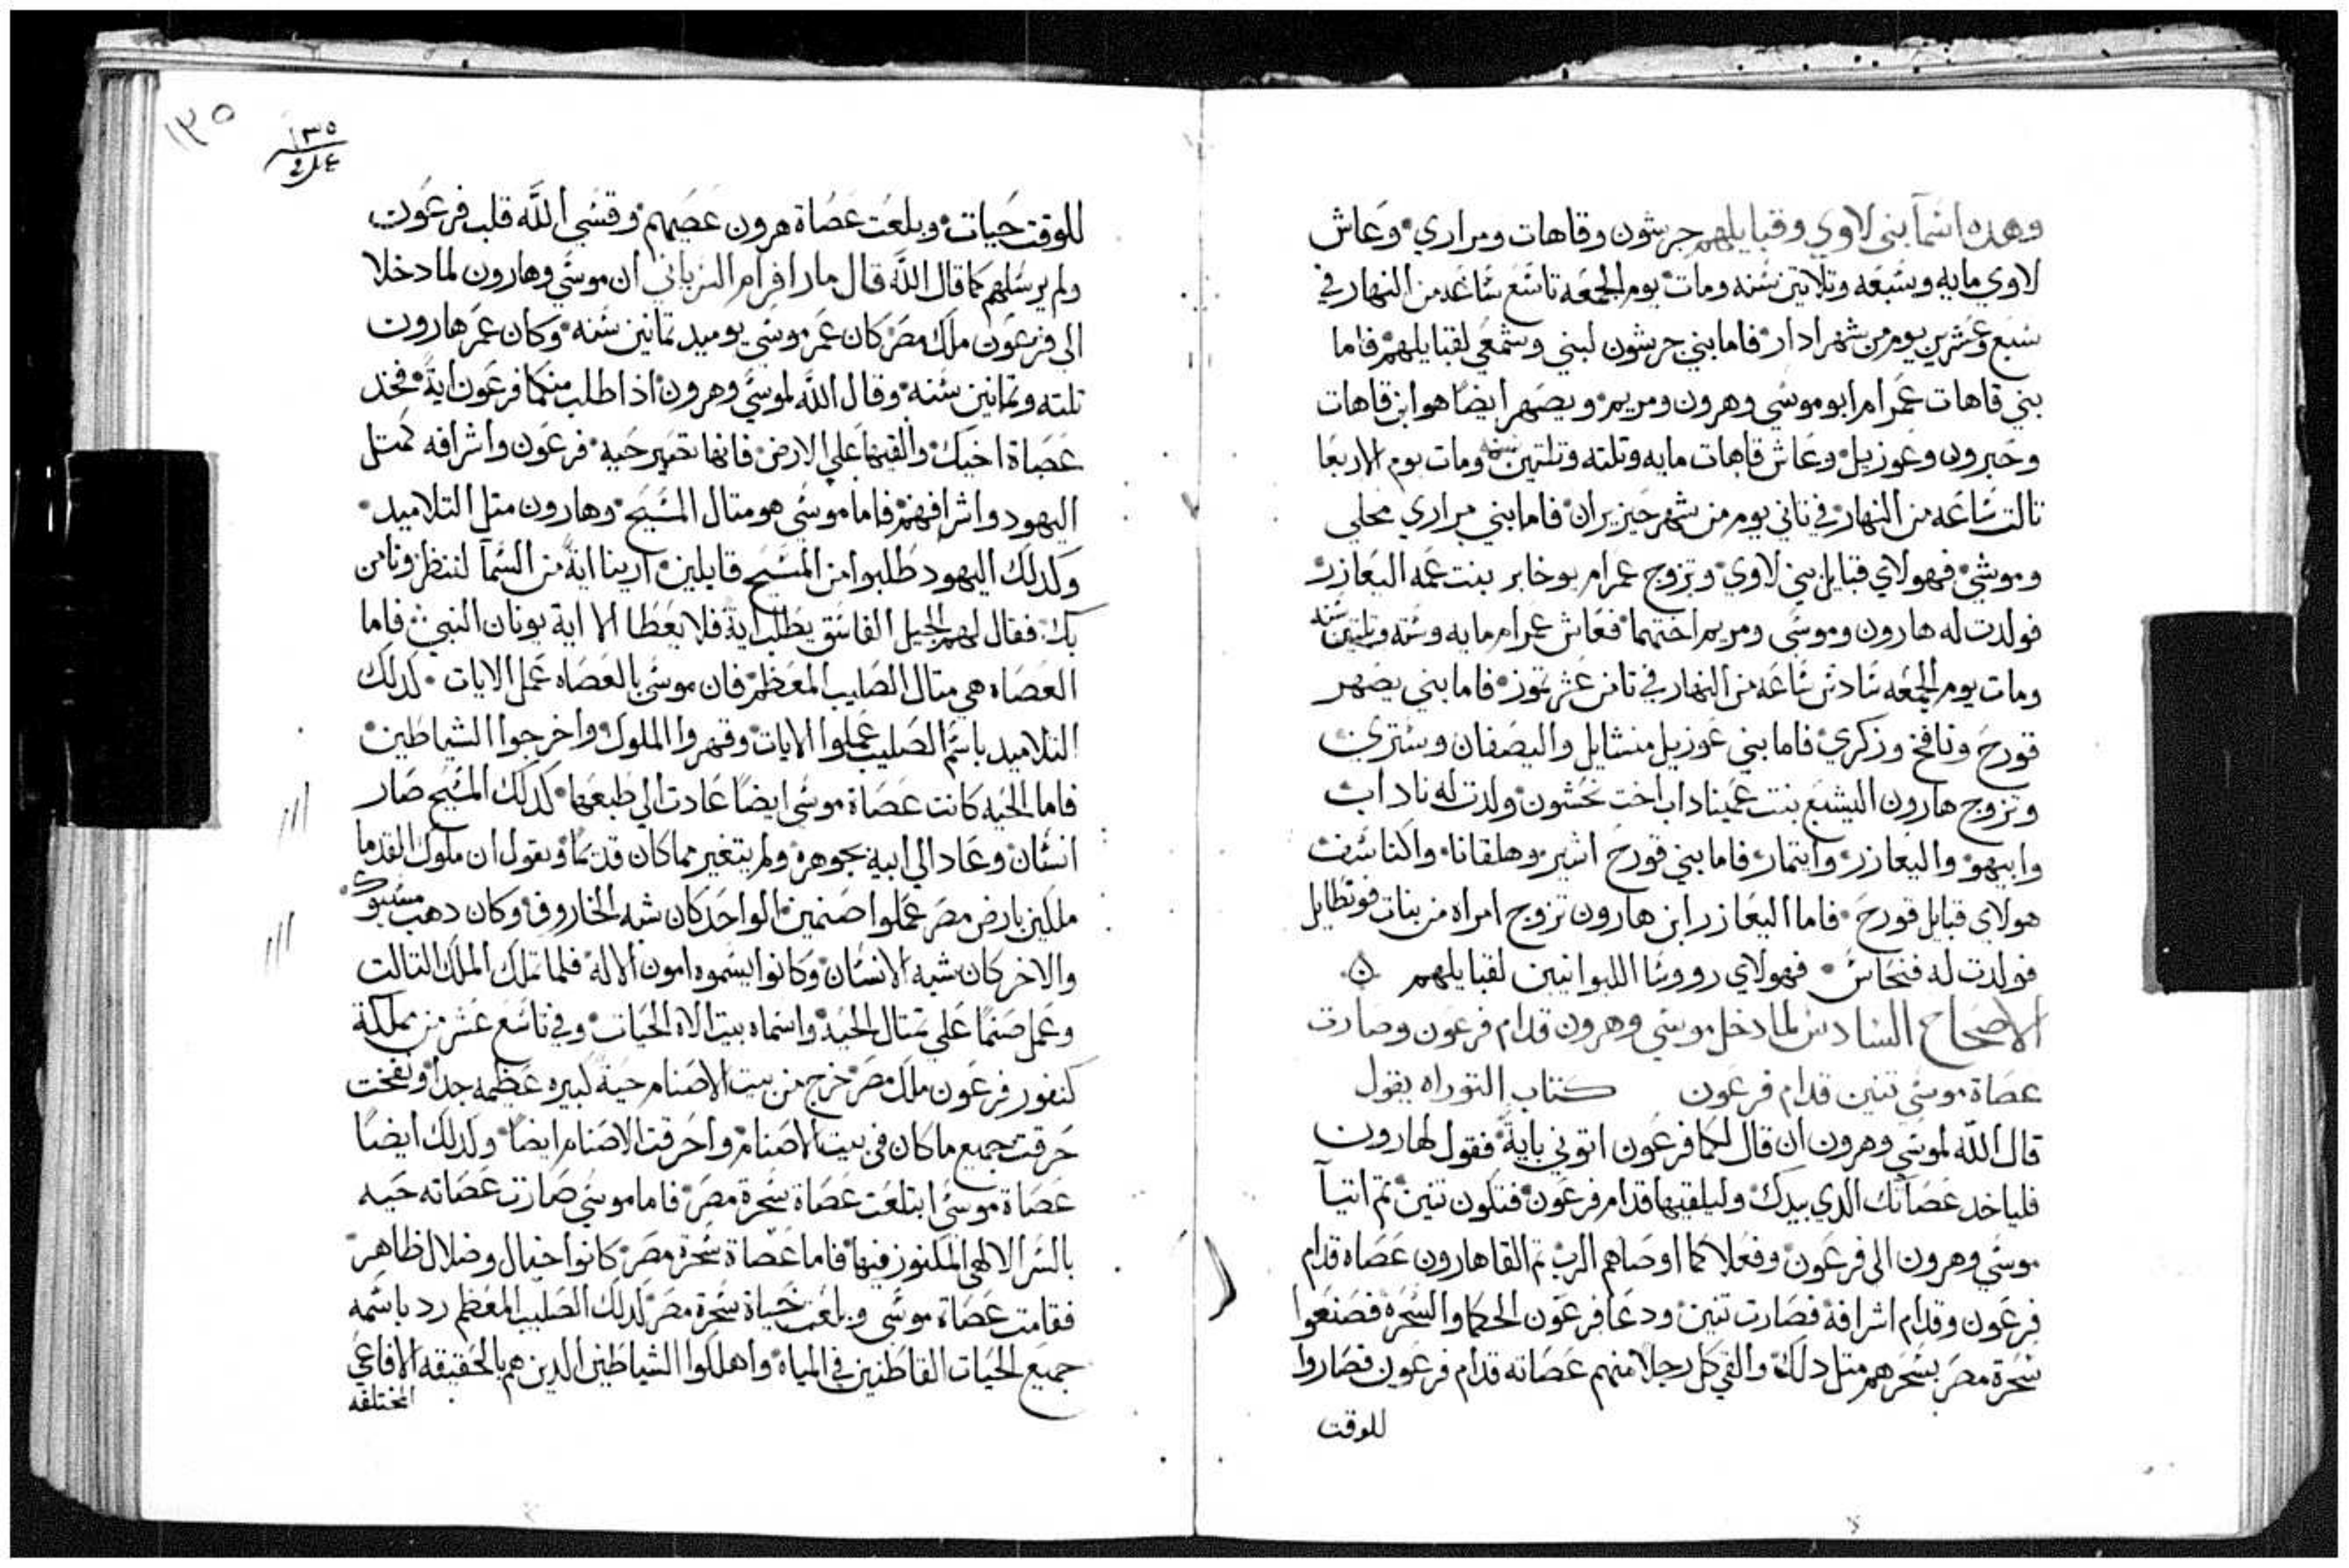 وهده اسَمآ بني لاوي وقبايلهم جرشون وقاهات ومراري وعَاش
لاوي مايه وسَبعَه وتلاتين سَنه ومات يوم الجمعَه تاسَع سَاعَه من النهار في
سَبع وعشرين يوم من شهر ادار فاما بني جرشون لبني وسَمعَي لقبايلهم فاما
بني قاهات عَمرام ابو موسَي وهرون ومريم ويصَهر ايضًا هو ابن قاهات
وحَبرون وعَوزيل وعَاش قاهات مايه وتلته وتلتين سنه ومات يوم الاربعَا
تالت سَاعَه من النهار في تاني يوم من شهر حَزيران فاما بني مراري محلي
وموشي فهولاي قبايل بني لاوي وتزوج عمرام يوخابر بنت عمه اليعَازر
فولدت له هارون وموسَي ومريم اختهما فعَاش عمرام مايه وسَته وتلتين سَنه
ومات يوم الجمعَه سَادسَ سَاعَه من النهار في تامن عَشر تموز فاما بني يصَهر
قورحَ ونافخ وزكري فاما بني عَوزيل منشايل واليصَفان وسَتري
وتزوج هارون اليشبَع بنت عَميناداب اخت نحَشون ولدت له ناداب
وابيهو واليعَازر وايتمار فاما بني قورحَ اشير وهلقانا واكناسَف
هولاي قبايل قورحَ فاما اليعَازر ابن هارون تزوج امراه من بنات فوتطايل
فولدت له فنحَاسَ فهولاي رووسَا الليوانيين لقبايلهم
الاصحَاح السَادسَ لما دخل موسَي وهرون قدام فرعَون وصَارت
عصَاة موسَي تنين قدام فرعَون كتاب التوراه يقول
قال اللّه لموسَي وهرون ان قال لكما فرعَون اتوني باية فقول لهارون
فلياخد عَصَاتك الدي بيدك وليلقيها قدام فرعَون فتكون تنين تم اتيآ
موسَي وهرون الي فرعَون وفعَلا كما اوصَاهم الرب تم القا هارون عَصَاه قدام
فرعَون وقدام اشرافه فصَارت تنين ودعَا فرعَون الحكما والسَحَرة فصَنعَوا
سَحَرة مصَر بسَحَرهم متل دلك والقي كل رجلا منهم عَصَاته قدام فرعَون فصَاروا
للوقت
١٣٥
١٣٥
للوقت حَيات وبلعَت عَصَاة هرون عَصَيهم وقسَي اللَّه قلب فرعَون
ولم يرسَلهم كما قال اللَّه قال مار افرام السَرياني ان موسَي وهارون لما دخلا
الي فرعَون ملك مصَر كان عَمر موسَي يوميد تمانين سَنه وكان عمَر هارون
تلته وتمانين سَنه وقال اللَّه لموسَي وهرون اذا طلب منكما فرعَون ايةً فخد
عَصَاة اخيك والقيها عَلي الارض فانها تصَير حَيه فرعَون واشرافه كمتل
اليهود واشرافهم فاما موسَي هو متال المسَيحَ وهارون متل التلاميد
وكدلك اليهود طَلبوا من المسَيح قايلين ارينا ايةً من السَمآ لننظر ونامن
بك فقال لهم الجيل الفاسَق يطَلب اية فلا يعَطَا الا اية يونان النبي فاما
العَصَاه هي متال الصَليب المعَظم فان موسَي بالعَصَاه عَمل الايات كدلك
التلاميد باسَم الصَليب عَملوا الايات وقهروا الملوك واخرجوا الشياطَين
فاما الحَيه كانت عَصَاة موسَي ايضًا عَادت الي طَبعَها كدلك المسَيح صَار
انسَان وعَاد الي ابيه بجوهره ولم يتغير مما كان قديمًا ويقول ان ملوك القدما
ملكين بارض مصَر عَملوا صَنمين الواحَد كان شبه الخاروف وكان دهب مسَبوك
والاخر كان شبه الانسَان وكانوا يسَموه امون الاله فلما تملك الملك التالت
وعَمل صَنمًا عَلي تمتال الحَيه واسَماه بيت الاه الحَيات وفي تاسَع عَشر من مملكة
كنفور فرعَون ملك مصَر خرج من بيت الاصَنام حَيةً كبيره عَظيمه جدًا ونفخت
حَرقت جميع ما كان في بيت الاصَنام واحَرقت الاصَنام ايضًا وكدلك ايضًا
عَصَاة موسَي ابتلعَت عَصَاة سَحَرة مصَر فاما موسَي صَارت عَصَاته حَيه
بالسَر الالهي المكنوز فيها فاما عَصَاة سَحَرة مصَر كانوا خيال وضلال ظاهر
فقامت عَصَاة موسَي وبلعَت حَياة سَحَرة مصَر كدلك الصَليب المعَظم رد باسَمه
جميعَ الحَيات القاطَنين في المياه واهلكوا الشياطَين الدين هم بالحَقيقه الافاعَي
المختلفه